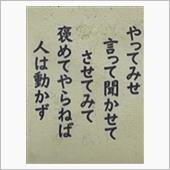 やってみせ
言って聞かせて
させてみて
褒めてやらねば
人は動かず